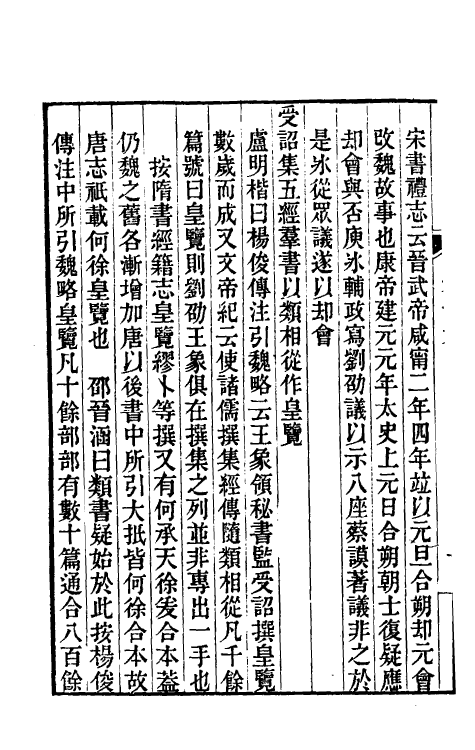 宋書禮志云晉武帝咸甯二年四年竝以元旦合朔却元會
改魏故事也康帝建元元年太史上元日合朔朝士復疑應
却會與否庾冰輔政寫劉劭議以示八座蔡謨著議非之於
是冰從眾議遂以却會
受詔集五經羣書以類相從作皇覽
盧明楷曰楊俊傳注引魏略云王象領秘書監受詔撰皇覽
數歲而成又文帝紀云使諸儒撰集經傳隨類相從凡千餘
篇號曰皇覽則劉劭王象俱在撰集之列並非專出一手也
按隋書經籍志皇覽繆卜等撰又有何承天徐爰合本葢
仍魏之舊各漸增加唐以後書中所引大抵皆何徐合本故
唐志祇載何徐皇覽也　邵晉涵曰類書疑始於此按楊俊
傳注中所引魏略皇覽凡十餘部部有數十篇通合八百餘